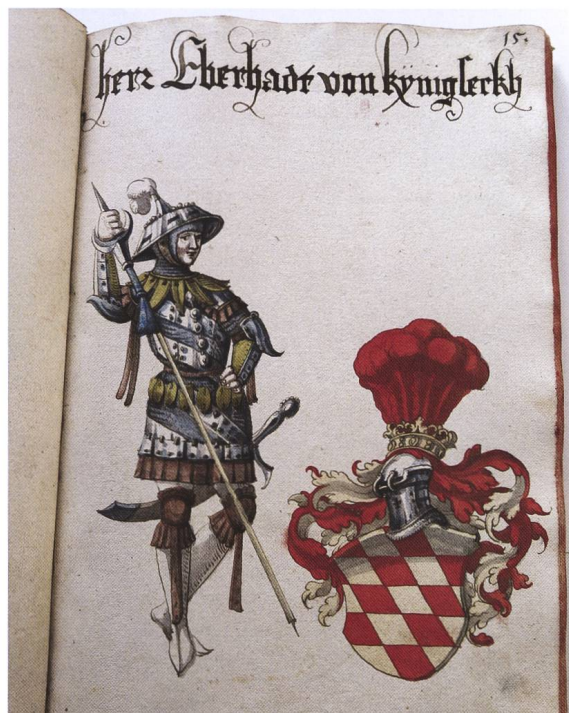 15.
herr Eberhadt von kÿnigseckh